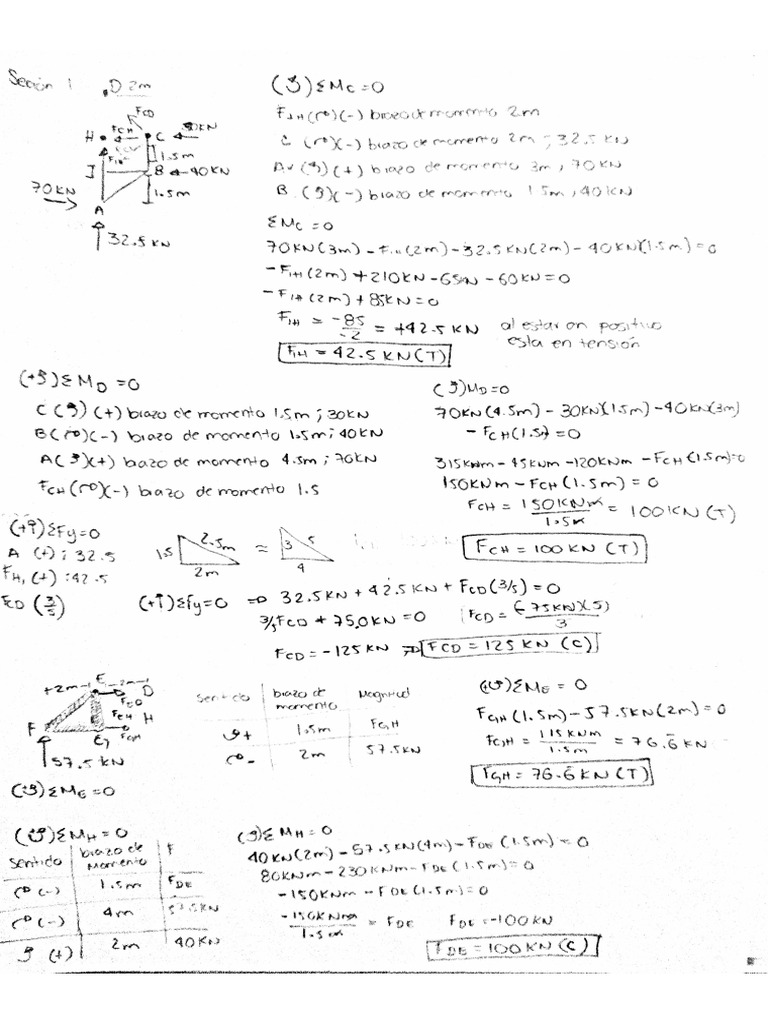 Sección 1
D 2m
FCD
H FCH C 30KN
1.5m
I B 40KN
70KN 1.5m
A
32.5 KN
(↺) ΣMC=0
FIH (↻)(-) brazo de momento 2m
C (↻)(-) brazo de momento 2m ; 32.5 KN
Av (↺)(+) brazo de momento 3m, 70KN
B (↺)(-) brazo de momento 1.5m, 40KN
ΣMC=0
70KN(3m) - FIH(2m) - 32.5KN(2m) - 40KN(1.5m)=0
-FIH(2m) + 210KN - 65KN - 60KN=0
-FIH(2m) + 85KN=0
FIH = -85/-2 = +42.5 KN al estar en positivo
esta en tensión
FIH = 42.5 KN(T)
(+↺) ΣMD=0
C (↺) (+) brazo de momento 1.5m ; 30KN
B(↻)(-) brazo de momento 1.5m; 40KN
A(↺)(+) brazo de momento 4.5m; 70KN
FCH (↻)(-) brazo de momento 1.5
(↺) MD=0
70KN(4.5m) - 30KN(1.5m) - 40KN(3m)
- FCH(1.5)=0
315KNm - 45KNm - 120KNm - FCH(1.5m)=0
150KNm - FCH(1.5m) = 0
FCH = 150KNm/1.5m = 100KN (T)
FCH = 100 KN (T)
(+↑) ΣFy=0
A (+) ; 32.5
FHI (+) : 42.5
FCD (3/5)
1.5 2.5m 2m ≈ 3 5 4
(+↑) ΣFy=0 ⇒ 32.5KN + 42.5KN + FCD(3/5)=0
3/5 FCD + 75.0KN=0 FCD = (-75KN)(5)/3
FCD = -125 KN ⇒ FCD = 125 KN (C)
+2m E 2m
D
FED
FEH H
F G FGH
57.5 KN
(↺) ΣME=0
sentido | brazo de momento | Magnitud
↺+ | 1.5m | FGH
↻- | 2m | 57.5KN
(+↺) ΣME = 0
FGH(1.5m) - 57.5KN(2m) = 0
FGH = 115KNm/1.5m = 76.6̄ KN
FGH = 76.6̄ KN (T)
(+↺) ΣMH=0
sentido | brazo de Momento | F
↻ (-) | 1.5m | FDE
↻ (-) | 4m | 57.5KN
↺ (+) | 2m | 40KN
(↺) ΣMH=0
40KN(2m) - 57.5KN(4m) - FDE (1.5m) = 0
80KNm - 230KNm - FDE(1.5m) = 0
-150KNm - FDE(1.5m) = 0
-150KNm/1.5m = FDE FDE = -100KN
FDE = 100KN (C)